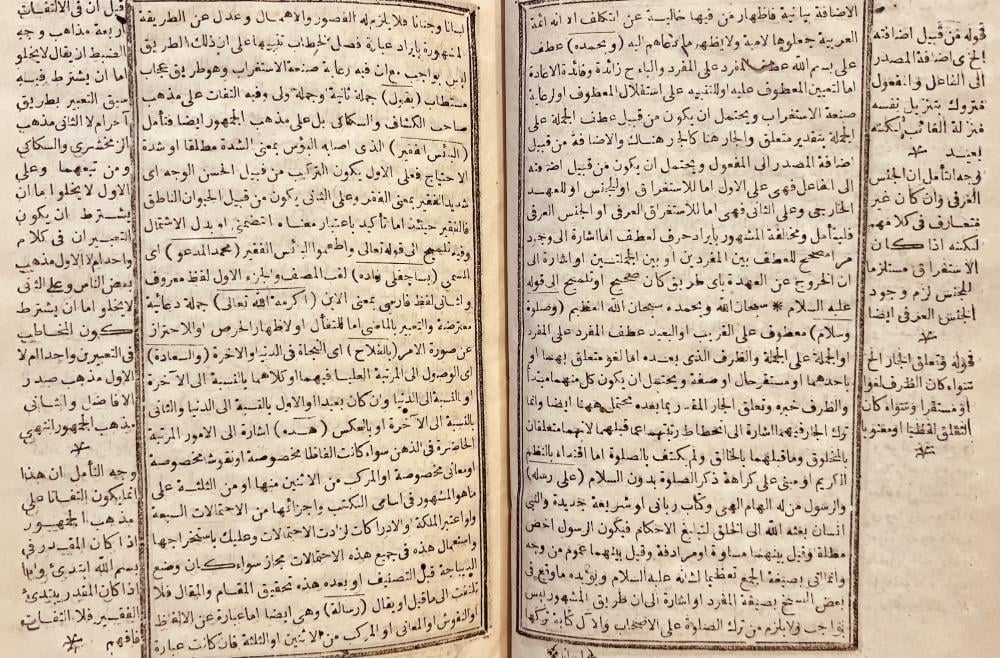 الاضافة بيانية فاظهار من فيها خالية عن التكلف الا انه ائمة
العربية جعلوها لامية ولا يظهر ما دعاهم اليه (وبحمده) عطف
على بسم الله عطف المفرد على المفرد والباء ح زائدة وفائدة الاعادة
اما لتعيين المعطوف عليه او للتنبيه على استقلال المعطوف او لرعاية
صنعة الاستغراب ويحتمل ان يكون من قبيل عطف الجملة على
الجملة بتقدير متعلق والجار هنا كالجار هناك والاضافة من قبيل
اضافة المصدر الى المفعول ويحتمل ان يكون من قبيل اضافته
الى الفاعل فهى على الاول اما للاستغراق او للجنس او للعهد
الخارجى وعلى الثانى فهى اما للاستغراق العرفى او الجنس العرفى
فليتأمل ومخالفة المشهور بايراد حرف لعطف اما اشارة الى وجود
مصحح للعطف بين المفردين او بين الجملتين او اشارة الى
ان الخروج عن العهدة باى طريق كان صحيح او تلميح الى قوله
عليه السلام * سبحان الله وبحمده سبحان الله العظيم (وصلوة
وسلام) معطوف على القريب او البعيد عطف المفرد على المفرد
او الجملة على الجملة والظرف الذى بعده اما لغو متعلق بهما او
باحدهما او مستقر حال او صفة ويحتمل ان يكون كل منهما مبتدأ
والظرف خبره وتعلق الجار المقدر بما بعده محتمل ههنا ايضا وانما
ترك الجار فيهما اشارة الى انحطاط رتبتهما عما قبلهما لانهما متعلقان
بالمخلوق وما قبلهما بالخالق ولم يكتف بالصلوة اما اقتداء بالنظم
الكريم او مبنى على كراهة ذكر الصلوة بدون السلام (على رسله)
والرسول من له الهام الهى وكتاب ربانى او شريعة جديدة والنبى
انسان بعثه الله الى الخلق لتبليغ الاحكام فيكون الرسول اخص
مطلقا وقيل بينهما مساوة او مرادفة وقيل بينهما عموم من وجه
وانما اتى بصيغة الجمع تعظيما لشانه عليه السلام ويؤيده ما وقع فى
بعض النسخ بصيغة المفرد او اشارة الى ان طريق المشهور ليس
بواجب ولا يلزم من ترك الصلوة على الاصحاب والال كتابة تركها
قوله من قبيل اضافته
الخ اى اضافة المصدر
الى الفاعل والمفعول
متروك بتنزيل نفسه
منزلة الغائب لنكتة
بعيد
*
وجه التأمل ان الجنس
العرفى وان كان غير
متعارف فى كلامهم
لكنه اذا كان
الاستغراق مستلزما
للجنس لزم وجود
الجنس العرفى ايضا
*
قوله وتعلق الجار الخ
سواء كان الظرف لغوا
او مستقرا وسواء كان
التعلق لفظيا او معنويا
*
لسانا وجنانا فلا يلزم له القصور والاهمال وعدل عن الطريقة
المشهورة بايراد عبارة فصل الخطاب تنبيها على ان ذلك الطريق
ليس بواجب مع ان فيه رعاية صنعة الاستغراب وهو طريق عجاب
مستطاب (يقول) جملة ثانية وجملة ولى وفيه التفات على مذهب
صاحب الكشاف والسكاكى بل على مذهب الجمهور ايضا فتأمل
(البائس الفقير) الذى اصابه البؤس بمعنى الشدة مطلقا او شدة
الاحتياج فعلى الاول يكون التركيب من قبيل الحسن الوجه اى
شديد الفقير بمعنى الفقر وعلى الثانى يكون من قبيل الحيوان الناطق
فالفقير حينئذ اما تأكيد باعتبار معناه التضمنى او بدل الاشتمال
وفيه تلميح الى قوله تعالى واطعموا البائس الفقير (محمد المدعو) اى
المسمى (بساچقلى زاده) لقب المصنف والجزء الاول لفظ معروف
والثانى لفظ فارسى بمعنى الابن (اكرمه الله تعالى) جملة دعائية
معترضة والتعبير بالماضى اما للتفأل او لاظهار الحرص او للاحتراز
عن صورة الامر (بالفلاح) اى النجاة فى الدنيا والاخرة (والسعادة)
اى الوصول الى المرتبة العليا فيهما او كلاهما بالنسبة الى الآخرة
او بالنسبة الى الدنيا وان كان بعيدا والاول بالنسبة الى الدنيا والثانى
بالنسبة الى الآخرة او بالعكس (هذه) اشارة الى الامور المرتبة
الحاضرة فى الذهن سواء كانت الفاظا مخصوصة او نقوشا مخصوصة
او معانى مخصوصة او المركب من الاثنين منها او من الثلثة على
ما هو المشهور فى اسامى الكتب واجزائها من الاحتمالات السبعة
ولو اعتبر الملكة والادراكات لزادت الاحتمالات وعليك باستخراجها
واستعمال هذه فى جميع هذه الاحتمالات مجاز سواء كان وضع
الديباجة قبل التصنيف او بعده هذه تحقيق المقام والمقال فلا
يلتفت الى ما قيل او يقال (رسالة) وهى ايضا اما عبارة عن الالفاظ
او النقوش او المعانى او المركب من الاثنين او الثلثة فان كانت عبارة
قيل ان فى الالتفات
اربعة مذاهب وجه
الضبط ان يقال لا يخلو
اما ان يشترط فيه
سبق التعبير بطريق
آخر ام لا الثانى مذهب
الزمخشرى والسكاكى
ومن تبعهما وعلى
الاول لا يخلو اما ان
يشترط ان يكون
التعبيران فى كلام
واحد ام لا الاول مذهب
بعض الناس وعلى الثانى
لا يخلو اما ان يشترط
كون المخاطب
فى التعبيرين واحدا ام لا
الاول مذهب صدر
الافاضل والثانى
مذهب الجمهور انتهى
*
وجه التأمل ان هذا
انما يكون التفاتا على
مذهب الجمهور
اذا كان المقدر فى
بسم الله ابتدئ واما
اذا كان المقدر يبتدئ
الفقير فلا التفات
فافهم *